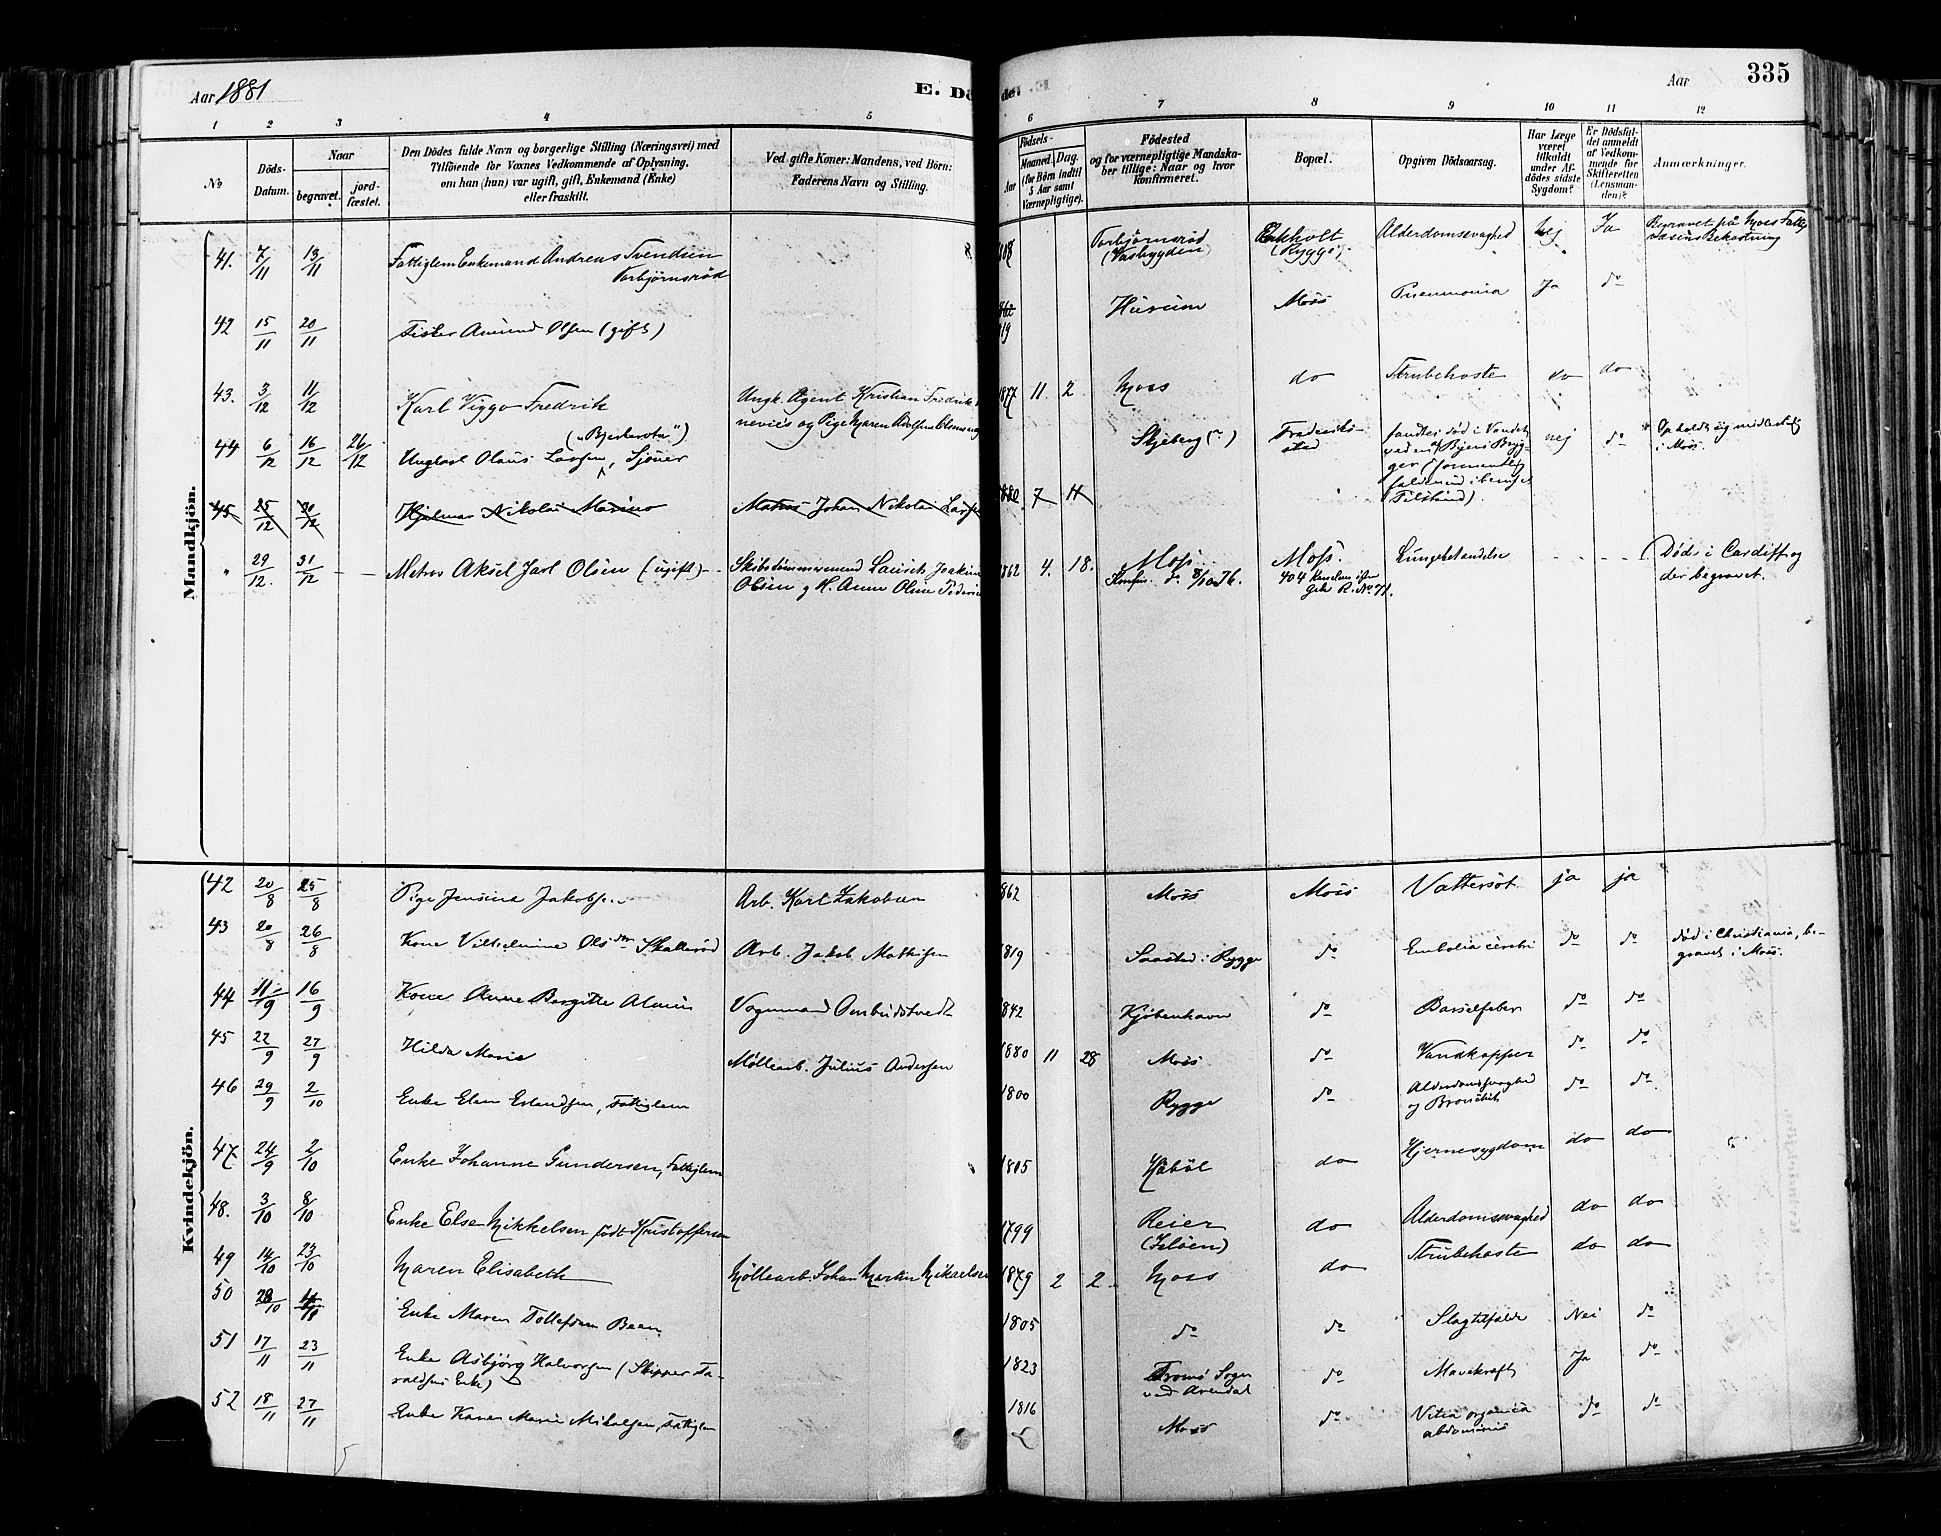 Aar 1881 E. Dö de. Aar 335
1 2 3 4 5 6 7 8 9 10 11 12
No
Döds-Datum.
Naar
begravet.
jord-fæstet.
Den Dödes fulde Navn og borgerlige Stilling (Næringsvei) med
Tilföiende for Voxnes Vedkommende af Oplysning,
om han (hun) var ugift, gift, Enkemand (Enke)
eller fraskilt.
Ved gifte Koner: Mandens, ved Börn:
Faderens Navn og Stilling.
Födsels-
Aar
Maaned. Dag.
(for Börn indtil
5 Aar samt
Værnepligtige).
Födested
og for værnepligtige Mandska-
ber tillige: Naar og hvor
konfirmeret.
Bopæl.
Opgiven Dödsaarsag.
Har Læge
været
tilkaldt
under Af-
dödes sidste
Sygdom?
Er Dödsfal-
det anmeldt
af Vedkom-
mende for
Skifteretten
(Lensman-
den)?
Anmærkninger.
Mandkjön.
41. 7/11 13/11 Fattiglem Enkemand Andreas Svendsen Torbjørnsrød 808 Torbjørnsrød (Vaabygden) Ekholt (Rygge) Alderdomssvaghed Nej Ja Begravet på Moss Fattigvæsens Bekostning
42 15/11 20/11 Fisker Amund Olsen (gift) 19 Hurum Moss Pneumonia Ja do
43. 3/12 11/12 Karl Viggo Fredrik Ungk. Agent Kristian Fredrik nevies og Pige Maren 1877 11. 2. Moss do Strubehoste do do
44 6/12 16/12 26/12 Ungkarl Olaus Larsen, ("Bjerkerota") Sjøuer Skjeberg (?) Frederikstad fandtes død i Vandet ved en af Byens Brygger (formentlig falden ud i beruset Tilstand). nej do Opholdt sig midlertidig i Moss.
45 25/12 30/12 Hjalmar Nikolai Marius Matros Johan Nikolai Larsen 1880 7 11
" 29/12. 31/12 — Matros Aksel Jarl Olsen (ugift) - Skibstømmermand Lauritz Joakim Olsen g H. Anne Oline Peders 1862 4. 18. Moss. Konfm. do 8/10 76. Moss. 404 Lungebetændelse - - - - (Døde i Cardiff og der begravet.
Kvindekjön.
42 20/8 25/8 Pige Jensine Jakobsen Arb. Karl Jakobsen 862 Moss Moss Vattersot ja ja
43 20/8 26/8 Kone Vilhelmine Olsdtr Skallerød Arb. Jakob Mathisen 1819 Saastad i Rygge do Embolia cerebri do do død i Christiania, begravet i Moss.
44 11/9 16/9 Kone Anne Birgitte Vognmand Ombudstvedt 842 Kjøbenhavn do Barselfeber do do
45 22/9 27/9 Hilda Marie Møllearb. Julius Andersen 1880 11 28 Moss do Vandkopper do do
46 29/9 2/10 Enke Elen Erlandsen, Fattiglem 1800 Rygge do Alderdomssvaghed og Bronchit do do
47 24/9 2/10 Enke Johanne Gundersen, Fattiglem 1805 Håbøl do Hjernesygdom do do
48. 3/10 8/10 Enke Else Mikkelsen født Kristoffersen 1799 Reier (Jeløen) do Alderdomssvaghed do do
49 14/10 23/10 Maren Elisabeth Møllearb. Johan Martin Mikaelsen 1879 2 2- Moss do Strubehoste do do
50 28/10 Enke Maren Tollefsen Been 1805 do do Slagtilfælde Nei do
51 17/11 23/11 Enke Asbjørg Halvorsen (Skipper Taraldsens Enke) 1823 Tromø Sogn ved Arendal do Mavekræft Ja do
52 18/11 27/11 Enke Karen Marie Mikalsen, Fattiglem 1816 Moss do Vitia organica abdominis do do